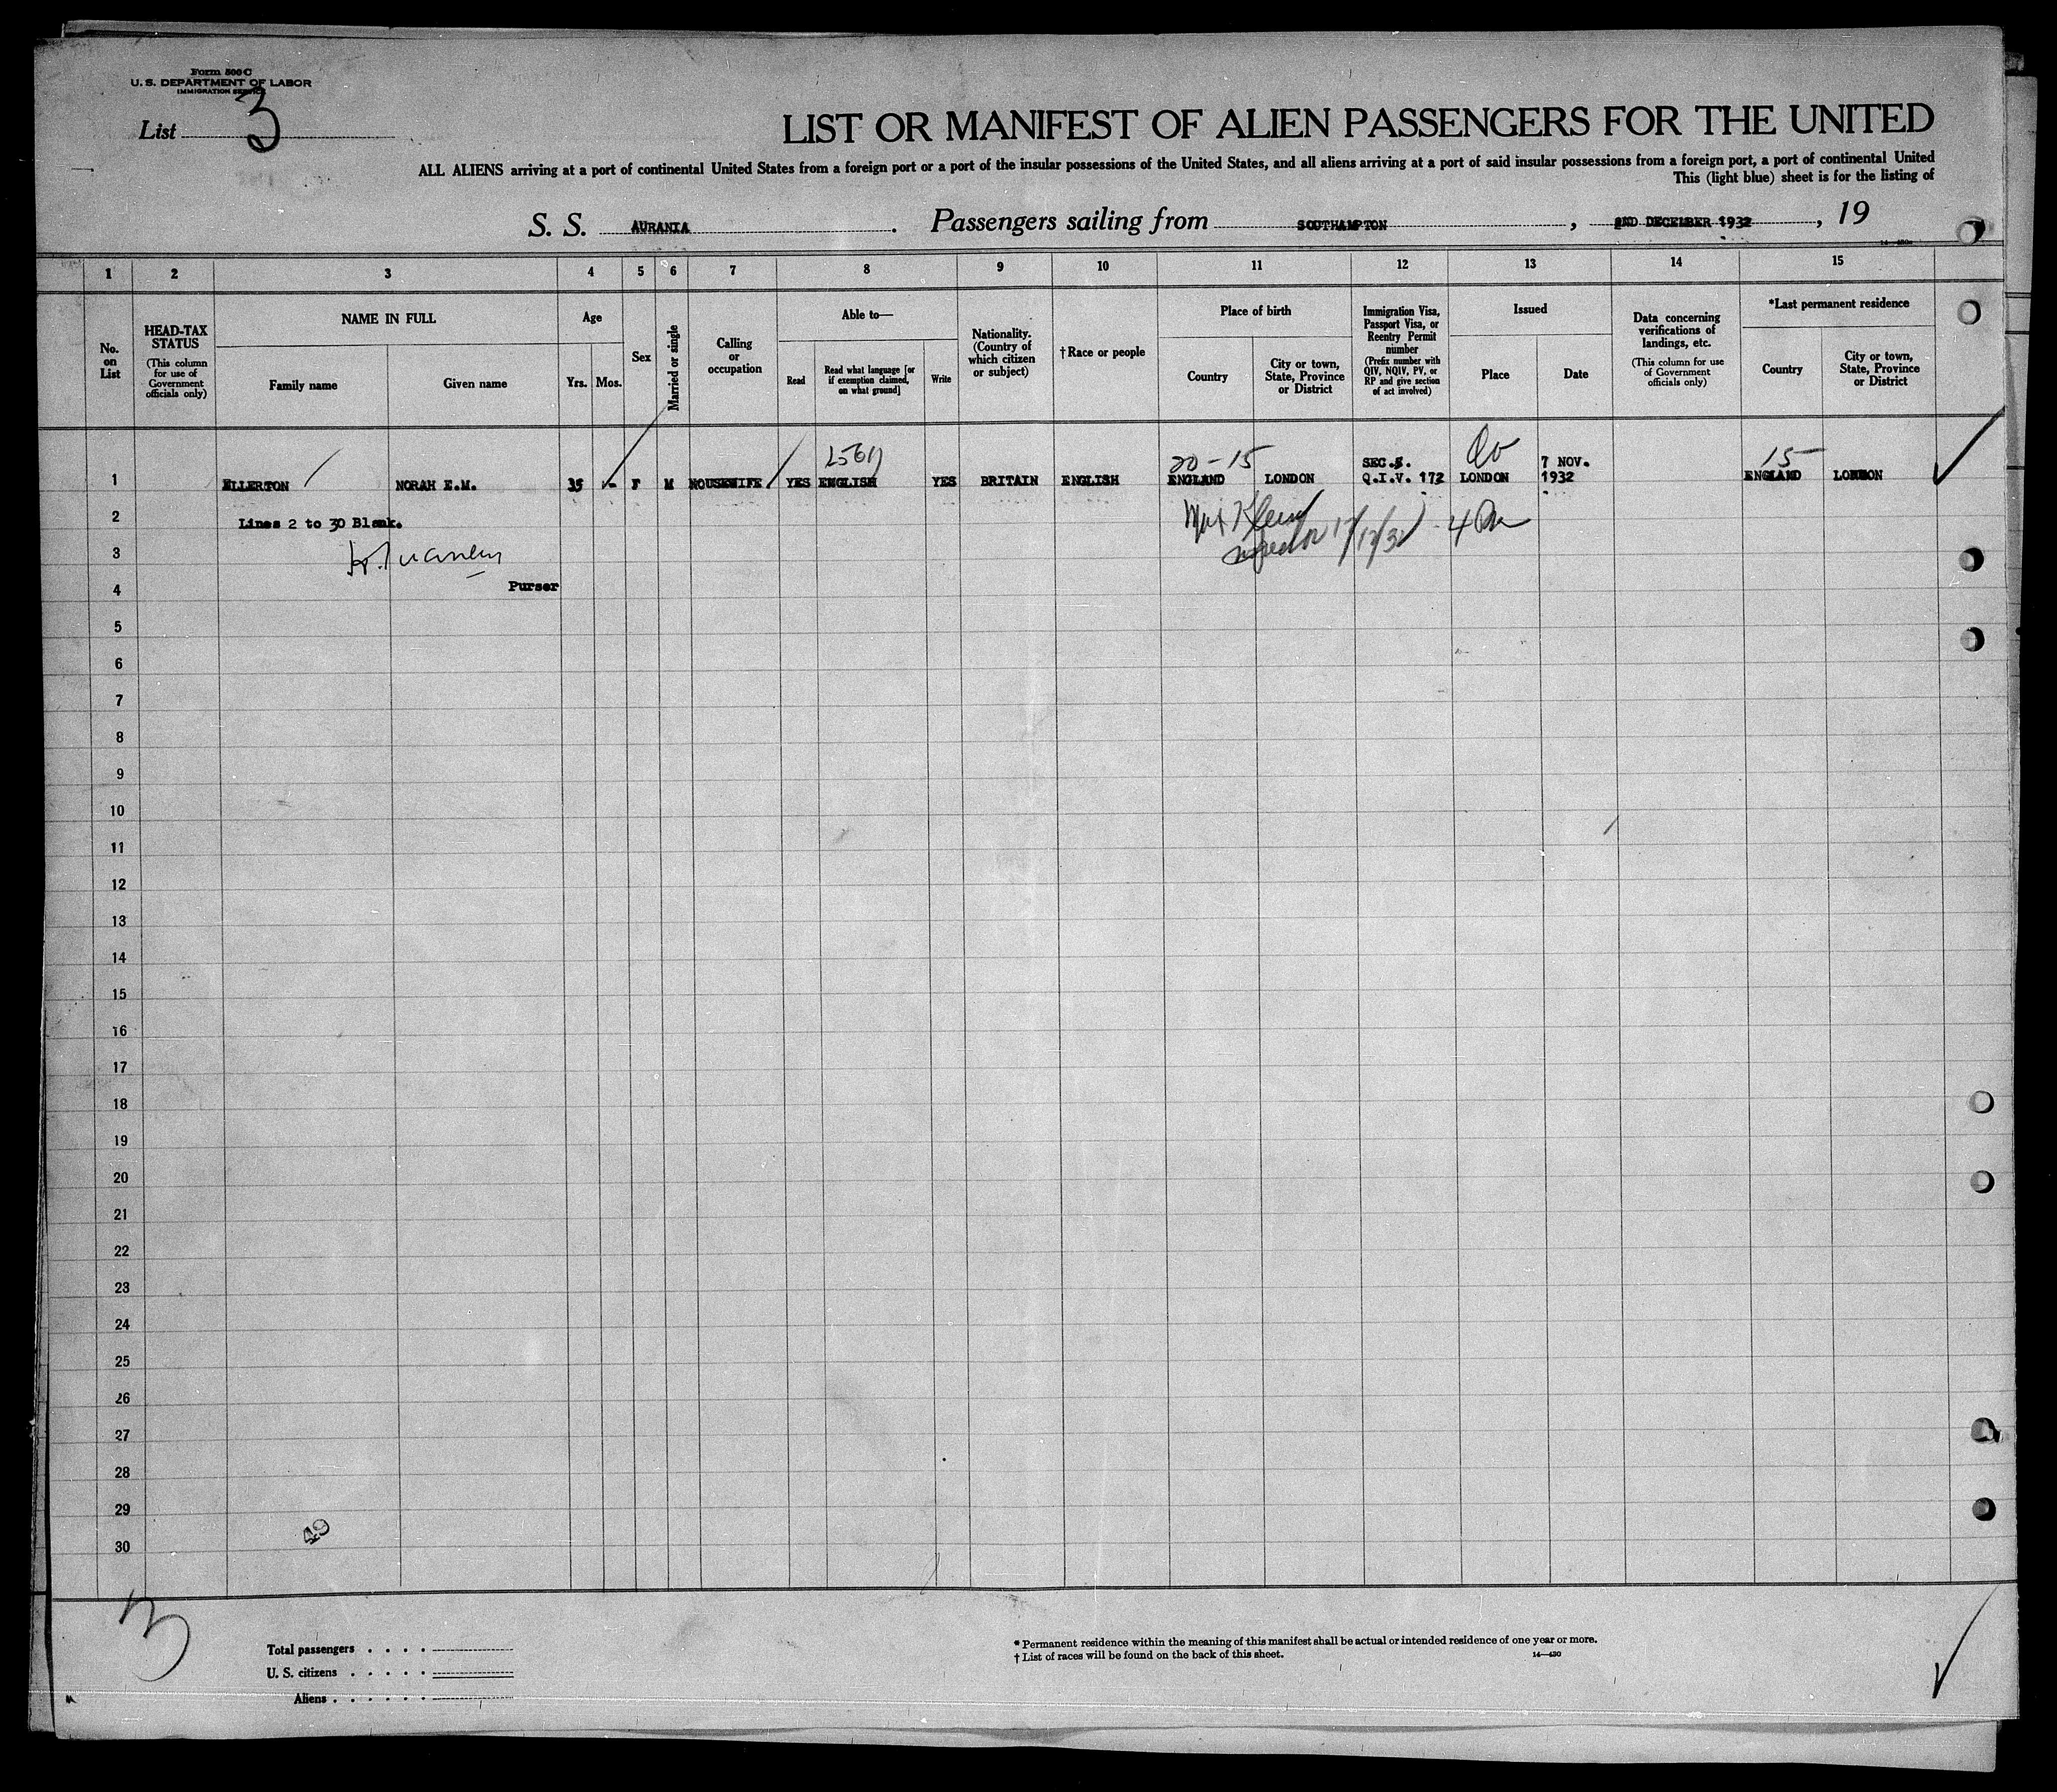 Form 500 C
U. S. DEPARTMENT OF LABOR
IMMIGRATION SERVICE
List 3
LIST OR MANIFEST OF ALIEN PASSENGERS FOR THE UNITED
ALL ALIENS arriving at a port of continental United States from a foreign port or a port of the insular possessions of the United States, and all aliens arriving at a port of said insular possessions from a foreign port, a port of continental United
This (light blue) sheet is for the listing of
S. S. AURANIA. Passengers sailing from SOUTHAMPTON, 2ND DECEMBER 1932, 19
1 2 3 4 5 6 7 8 9 10 11 12 13 14 15
No. on List
HEAD-TAX STATUS
(This column for use of Government officials only)
NAME IN FULL
Family name
Given name
Age
Yrs. Mos.
Sex
Married or single
Calling or occupation
Able to—
Read
Read what language [or if exemption claimed, on what ground]
Write
Nationality. (Country of which citizen or subject)
†Race or people
Place of birth
Country
City or town, State, Province or District
Immigration Visa, Passport Visa, or Reentry Permit number
(Prefix number with QIV, NQIV, PV, or RP and give section of act involved)
Issued
Place
Date
Data concerning verifications of landings, etc.
(This column for use of Government officials only)
*Last permanent residence
Country
City or town, State, Province or District
20-15 15
SEC.5. 7 NOV.
1 ELLERTON NORAH E.M. 35 - F M HOUSEWIFE. YES ENGLISH YES BRITAIN ENGLISH ENGLAND LONDON Q.I.V. 172 LONDON 1932 ENGLAND LONDON
2 Lines 2 to 30 Blank.
3
4 Purser
5
6
7
8
9
10
11
12
13
14
15
16
17
18
19
20
21
22
23
24
25
26
27
28
29
30
49
3
Total passengers . . . .
U. S. citizens . . . . .
Aliens . . . . . .
* Permanent residence within the meaning of this manifest shall be actual or intended residence of one year or more.
† List of races will be found on the back of this sheet.
14—430